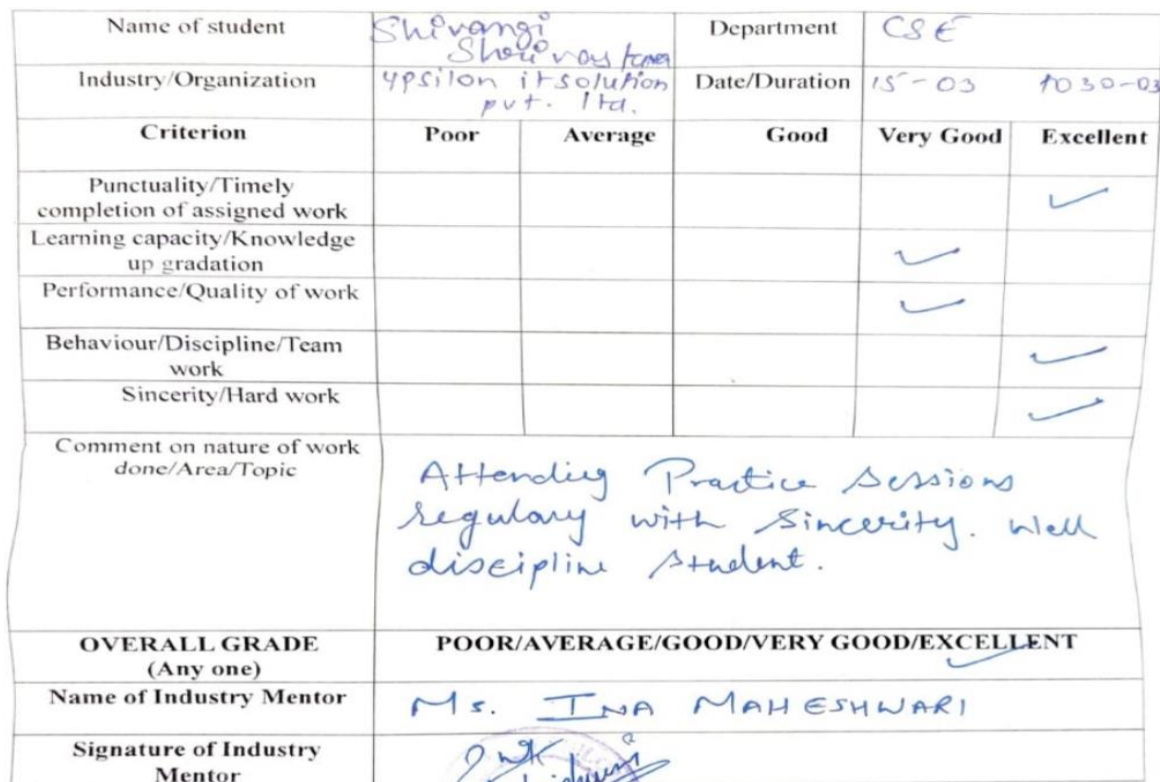 Name of student Shivangi Department CSE
Industry/Organization ypsilon itsolution Date/Duration 15-03 to 30-03
pvt. ltd.
Criterion Poor Average Good Very Good Excellent
Punctuality/Timely
completion of assigned work ✓
Learning capacity/Knowledge
up gradation ✓
Performance/Quality of work ✓
Behaviour/Discipline/Team
work ✓
Sincerity/Hard work ✓
Comment on nature of work
done/Area/Topic
Attending Practice Sessions
regulary with Sincerity. Well
discipline Student.
OVERALL GRADE POOR/AVERAGE/GOOD/VERY GOOD/EXCELLENT
(Any one) ✓
Name of Industry Mentor Ms. INA MAHESHWARI
Signature of Industry
Mentor